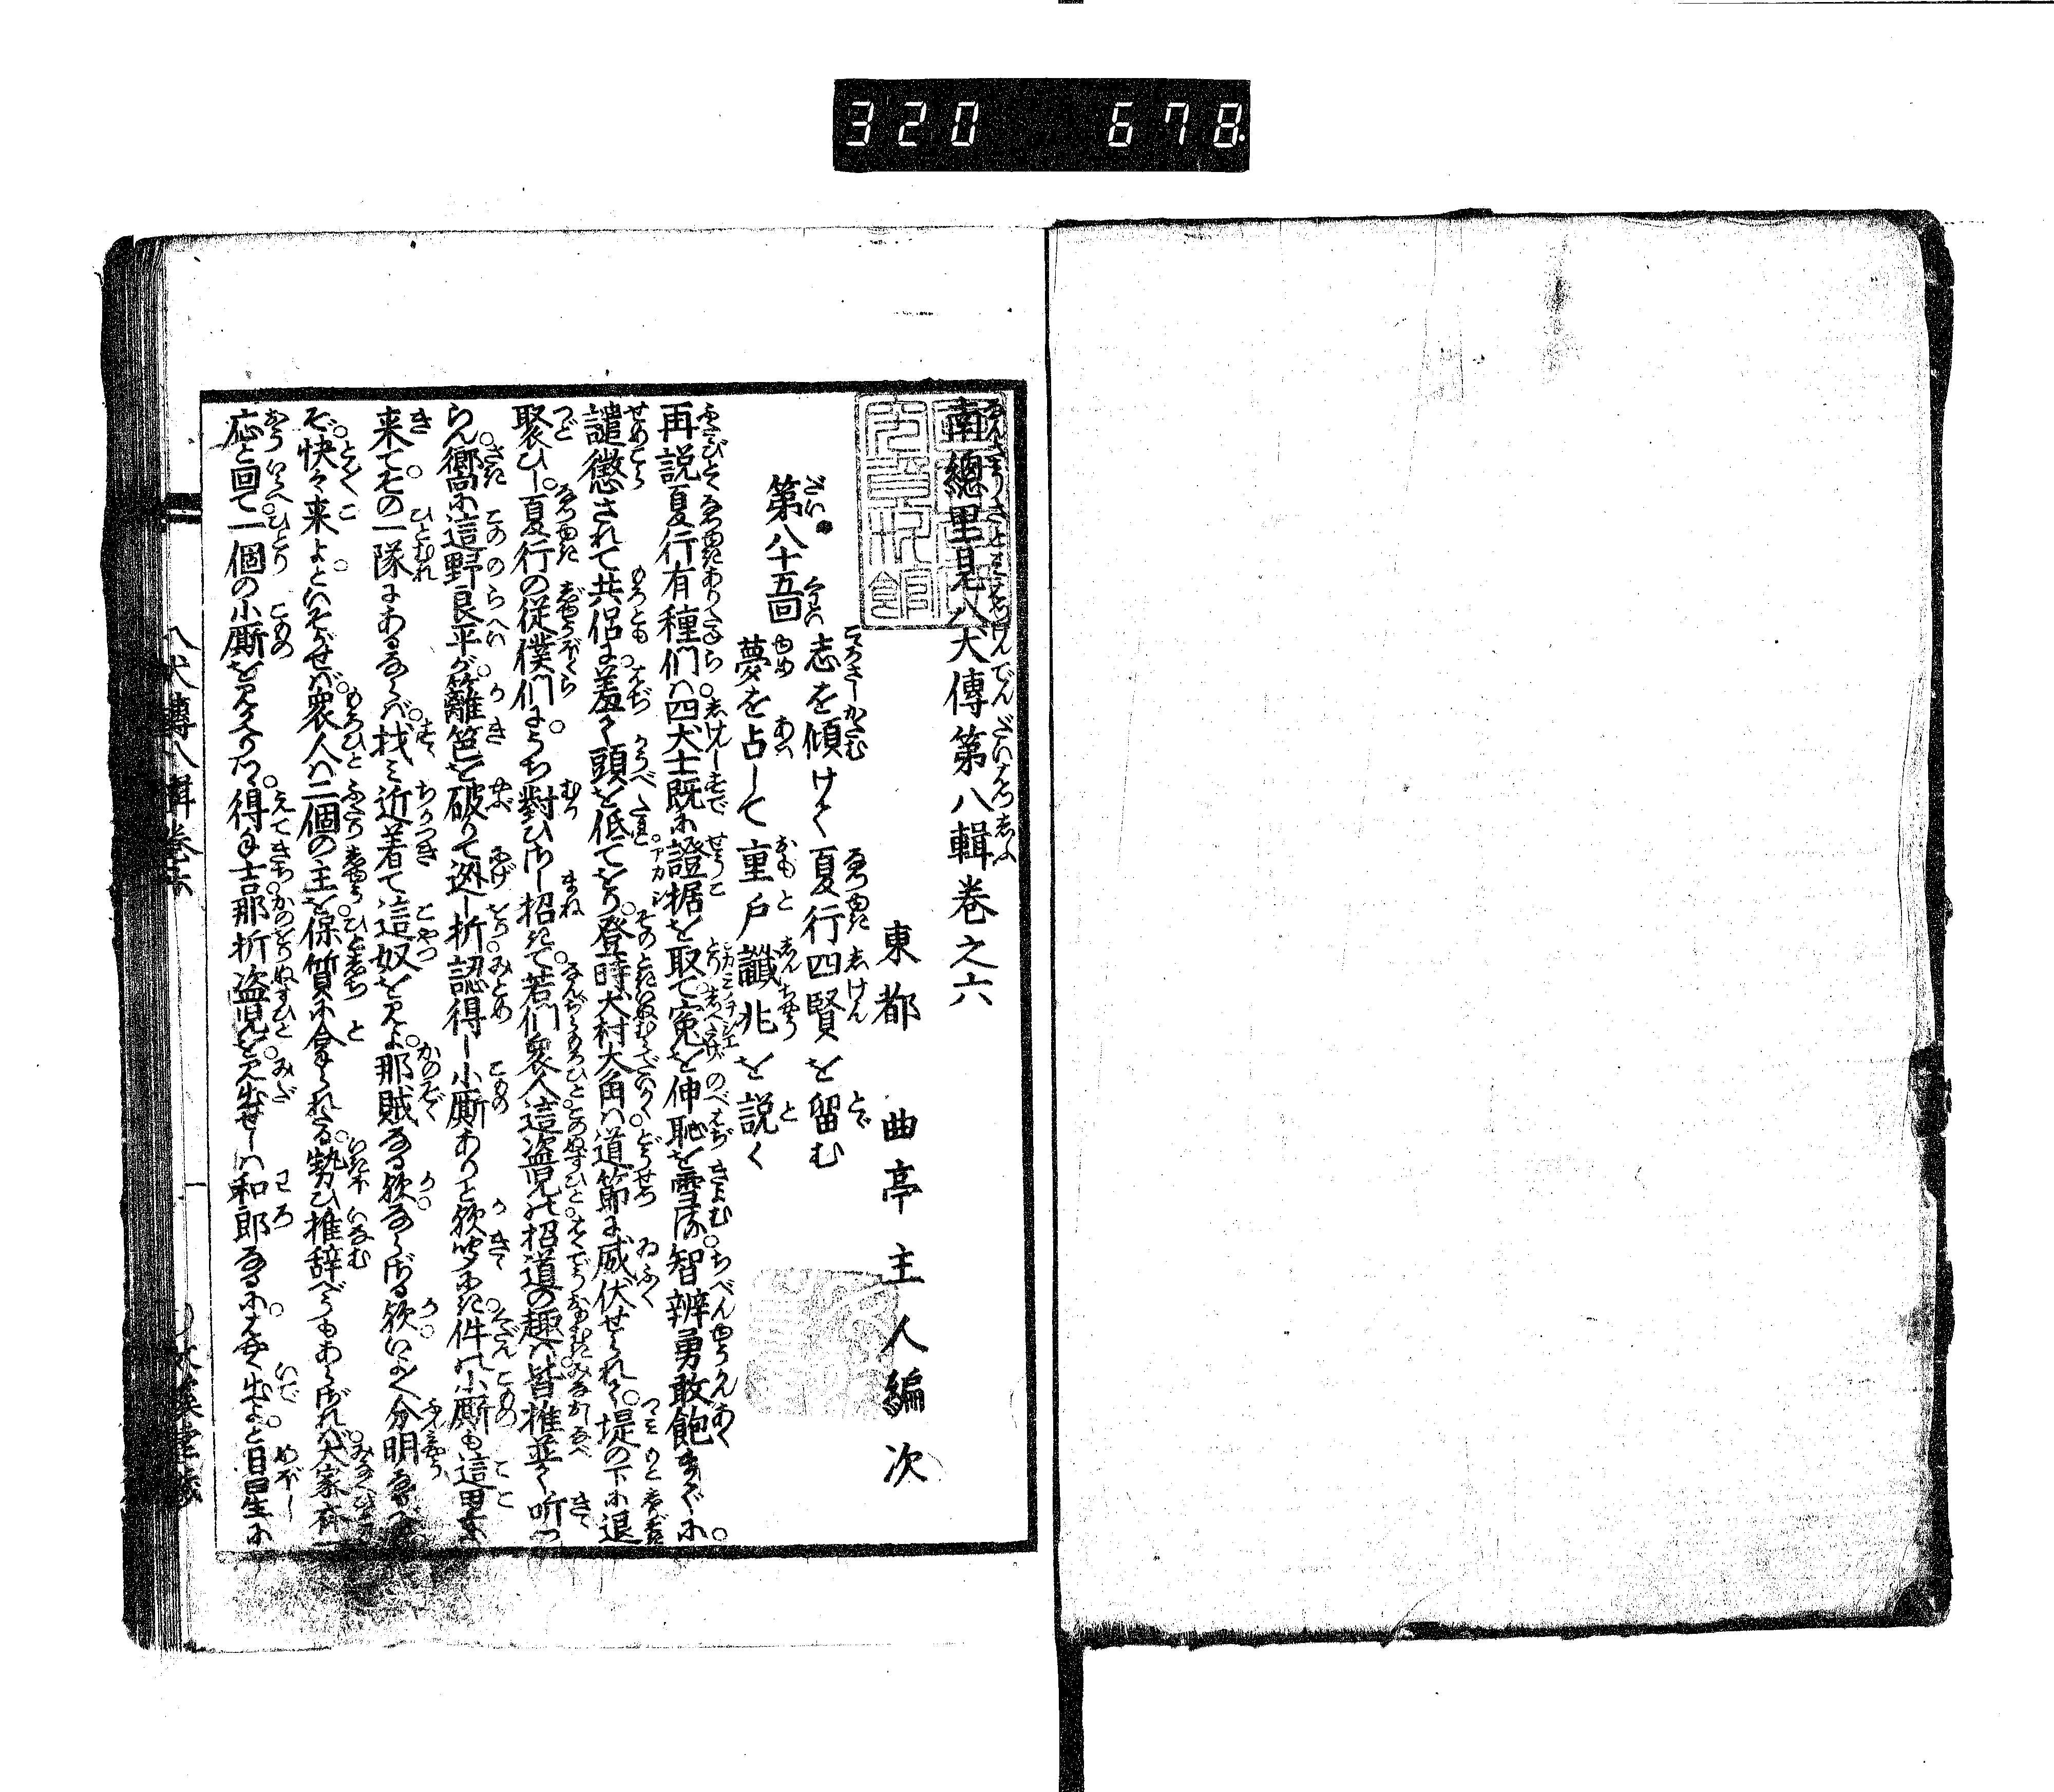 320 678
南總里見八犬傳第八輯卷之六
東都 曲亭主人編次
第八十五回
志を傾けて夏行四賢を留む
夢を占して重戶讖兆を説く
再説夏行有種們ハ四犬士既に證据を取て寃を伸恥を雪る智辨勇敢飽まで小
譴懲されて共侶に羞て頭を低てをり登時犬村大角ハ道節に威伏せられて堤の下に退
聚ひし夏行の從僕們にうち對ひつゝ招きて若們衆人這盗児の招道の趣ハ皆推並て听つ
らん嚮に這野良平が籬笆を破りて迯し折認得し小厮ありと歟聞にき件の小厮も這里に
来てその一隊にあるならバ找み近着て這奴を見よ那賊なる歟ならざる歟いかで分明なるべ
ぞ快々来よといそがせバ衆人ハ二個の主を保質に拿られたる勢ひ推辞べうもあらざれバ大家齊一
応と回て一個の小厮を見かへりつ得
吉那折盗児を見出せしハ和郎なるに
出よと目星に
八犬傳八輯卷六
一